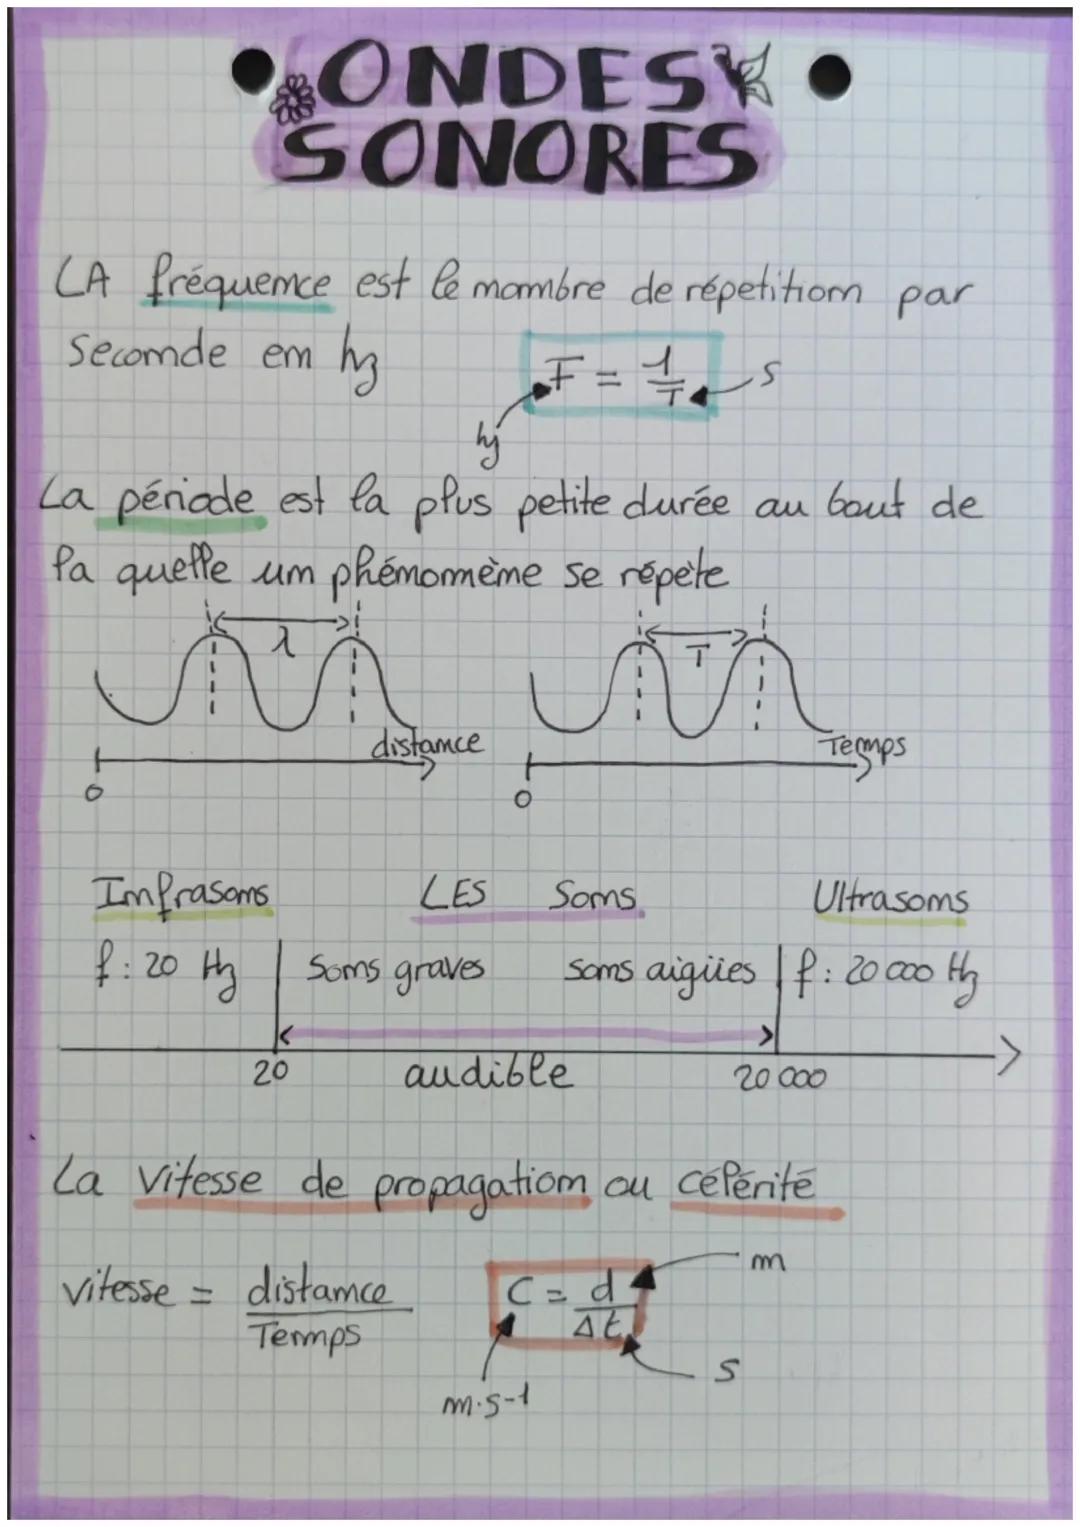 ONDES
SONORES
LA fréquence est le nombre de répetition par
seconde en hz
F = 1/T
s
hz
La période est la plus petite durée au bout de
la quelle un phénomème se répète
λ
T
distance
Temps
0
0
Infrasons
LES Sons
Ultrasons
f : 20 Hz
Sons graves
sons aigües
f : 20 000 Hz
20
audible
20 000
La vitesse de propagation ou célérité
vitesse = distance/Temps
C = d/Δt
m
s
m.s-1